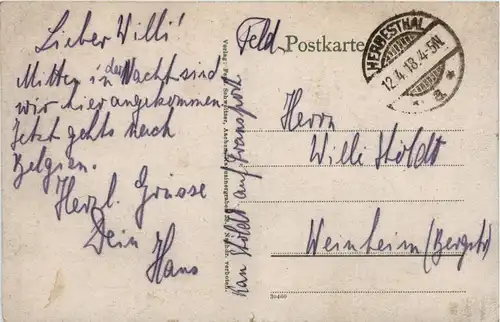 Lieber Willi!
Mitten in der Nacht sind
wir hier angekommen.
Jetzt gehts nach
Belgien.
Herzl. Grüsse
Dein
Hans
Feld Postkarte
HERBESTHAL
12.4.18.4-5N.
* a. *
Herrn
Willi Stöldt
Weinheim (Bergstr)
Kan Stöldt auf Transport
30460